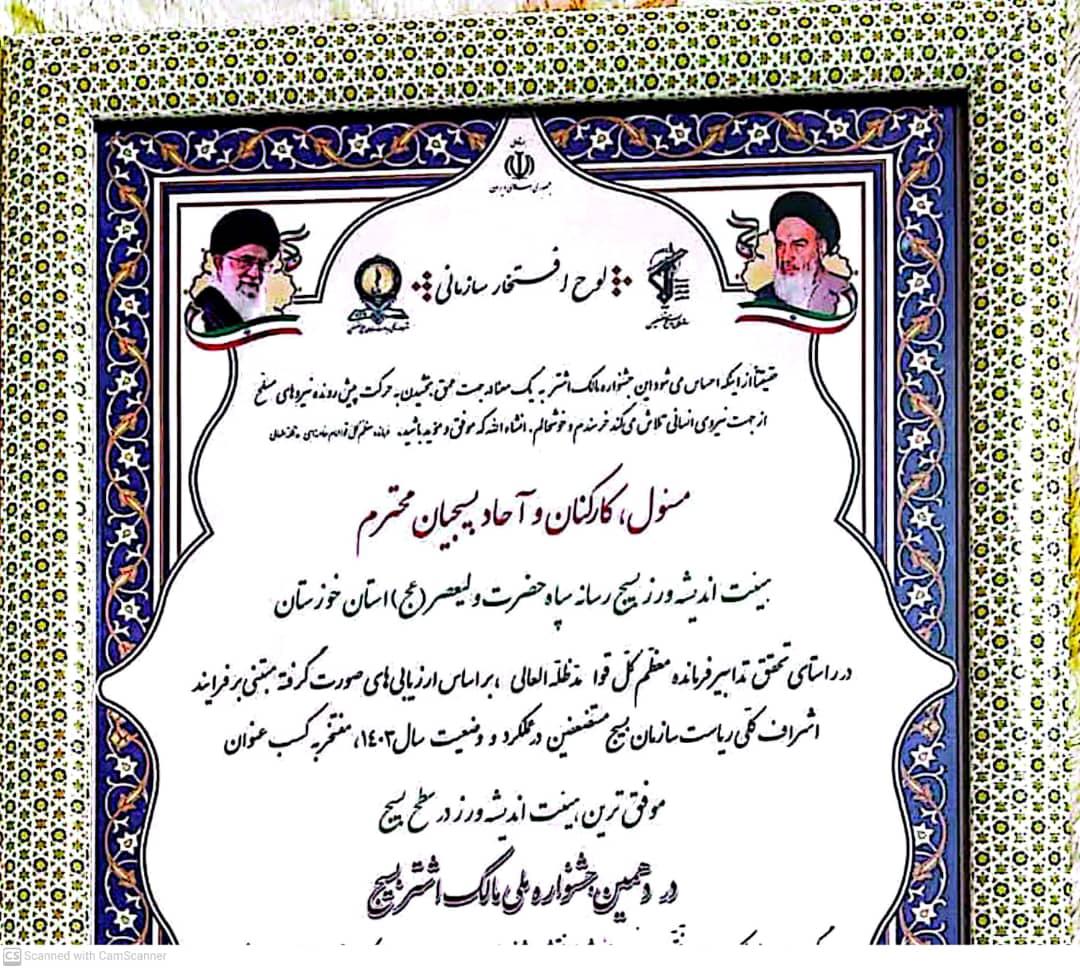 جمهوری اسلامی ایران
لوح افتخار سازمانی
حقیقتاً از اینکه احساس می شود این جشنواره مالک اشتر به یک معنا در جهت عمق بخشیدن به حرکت پیش رونده نیروهای مسلح
از جهت نیروی انسانی تلاش می کند خرسندم و خوشحالم. انشاء الله که موفق و مؤید باشید.
مسئول، کارکنان و آحاد بسیجیان محترم
هیئت اندیشه ورز بسیج رسانه سپاه حضرت ولیعصر (عج) استان خوزستان
در راستای تحقق تدابیر فرمانده معظم کل قوا مدظله العالی ، بر اساس ارزیابی های صورت گرفته مبتنی بر فرایند
اشراف کلی ریاست سازمان بسیج مستضعفین در عملکرد و وضعیت سال ۱۴۰۳، مفتخر به کسب عنوان
موفق ترین هیئت اندیشه ورز در سطح بسیج
در دهمین جشنواره ملی مالک اشتر بسیج
CS Scanned with CamScanner